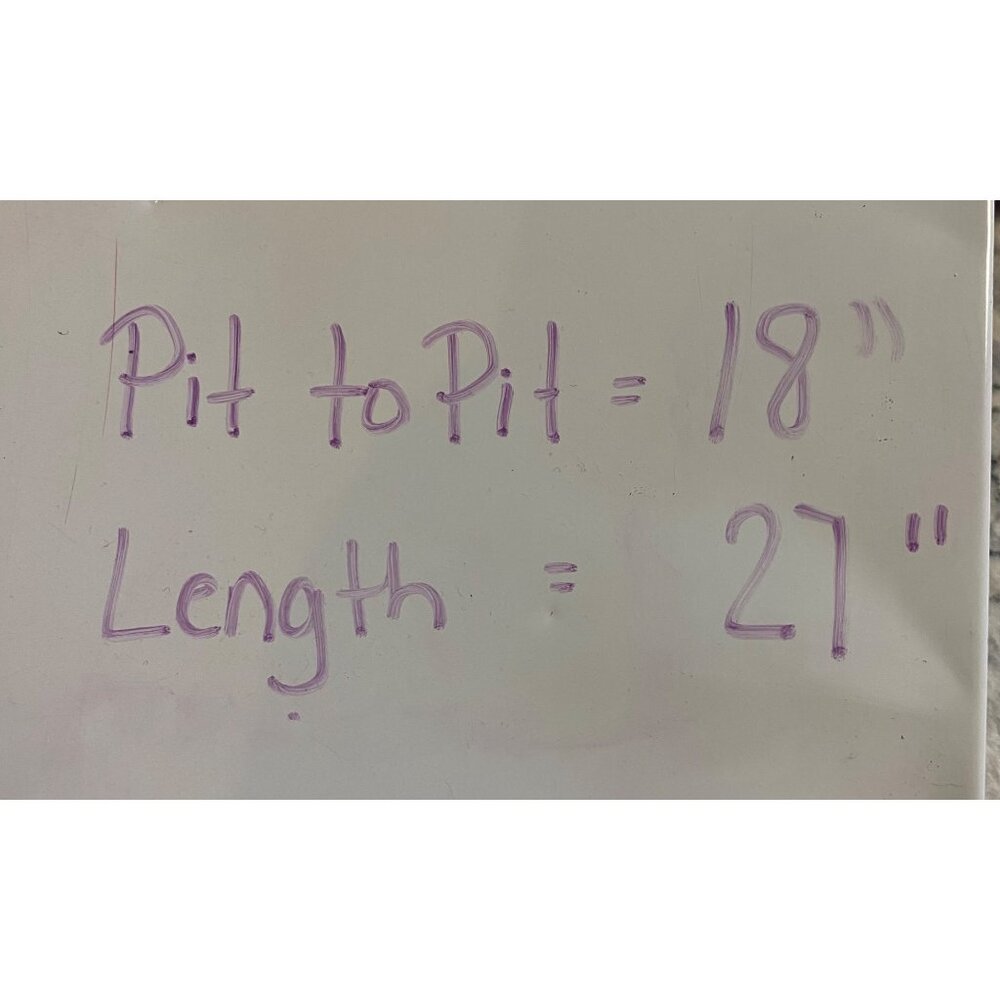 Pit to Pit = 18"
Length = 27"